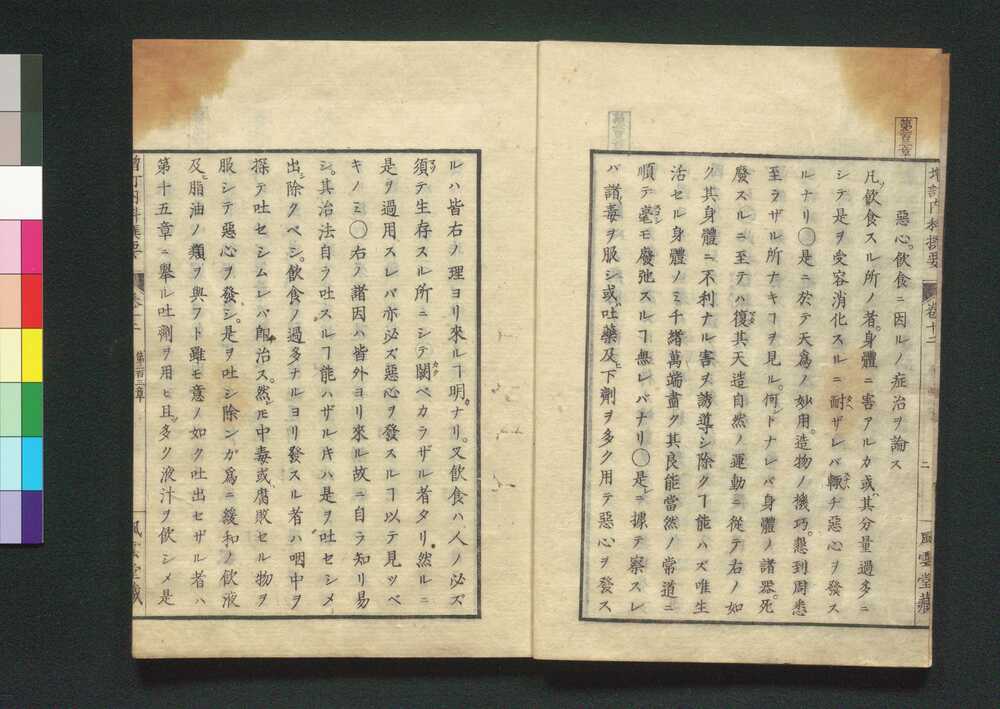 第百三章
増訂内科撰要 卷十二 二 風雲堂藏
惡心飲食ニ因ルノ症治ヲ論ス
凡ソ飲食スル所ノ者。身體ニ害アルカ或ハ其分量過多ニ
シテ是ヲ受容消化スルニ耐ザレバ輙チ惡心ヲ發ス
ルナリ◯是ニ於テ天爲ノ妙用。造物ノ機巧。懇到周悉
至ラザル所ナキヿヲ見ル。何トナレバ身體ノ諸器。死
廢スルニ至テハ復其天造自然ノ運動ニ從テ右ノ如
ク其身體ニ不利ナル害ヲ誘導シ除クヿ能ハズ唯生
活セル身體ノミ千緒萬端盡ク其良能當然ノ常道ニ
順テ毫モ廢弛スルヿ無レバナリ◯是ニ據テ察スレ
バ諸毒ヲ服シ或ハ吐藥及ヒ下劑ヲ多ク用テ惡心ヲ發ス
ルハ皆右ノ理ヨリ來ルヿ明ナリ。又飲食ハ人ノ必ズ
須テ生存スル所ニシテ闕ベカラザル者タリ。然ルニ
是ヲ過用スレバ亦必ズ惡心ヲ發スルヿ以テ見ツベ
キノミ◯右ノ諸因ハ皆外ヨリ來ル故ニ自ラ知リ易
シ。其治法自ラ吐スルヿ能ハザル片ハ是ヲ吐セシメ
出シ除クベシ。飲食ノ過多ナルヨリ發スル者ハ咽中ヲ
探テ吐セシムレバ卽治ス。然レモ中毒或ハ腐敗セル物ヲ
服シテ惡心ヲ發シ。是ヲ吐シ除ンガ爲ニ緩和ノ飲液
及ヒ脂油ノ類ヲ與フト雖モ意ノ如ク吐出セザル者ハ
第十五章ニ擧ル吐劑ヲ用ヒ且ツ多ク液汁ヲ飲シメ是
第百三章